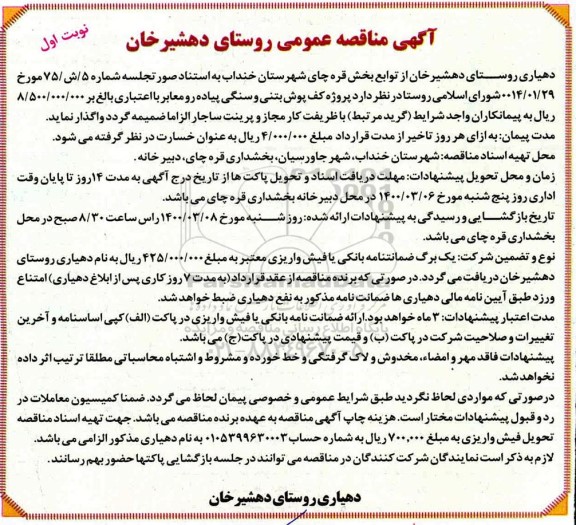 آگهی مناقصه عمومی روستای دهشیرخان
نوبت اول
دهیاری روستای دهشیرخان از توابع بخش قره چای شهرستان خنداب به استناد صورتجلسه شماره ۵/ش/۷۵ مورخ
۰۰۱۴/۰۱/۲۹ شورای اسلامی روستا در نظر دارد پروژه کف پوش بتنی و سنگی پیاده رو و معابر با اعتباری بالغ بر ۸/۵۰۰/۰۰۰/۰۰۰
ریال به پیمانکاران واجد شرایط (گرید مرتبط) با ظریفت کار مجاز و پرینت ساجار الزاما ضمیمه گردد واگذار نماید.
مدت پیمان: به ازای هر روز تاخیر از مدت قرارداد مبلغ ۴/۰۰۰/۰۰۰ ریال به عنوان خسارت در نظر گرفته می شود.
محل تهیه اسناد مناقصه: شهرستان خنداب، شهر جاورسیان، بخشداری قره چای، دبیر خانه.
زمان و محل تحویل پیشنهادات: مهلت دریافت اسناد و تحویل پاکت ها از تاریخ درج آگهی به مدت ۱۴ روز تا پایان وقت
اداری روز پنج شنبه مورخ ۱۴۰۰/۰۳/۰۶ در محل دبیر خانه بخشداری قره چای می باشد.
تاریخ بازگشایی و رسیدگی به پیشنهادات ارائه شده: روز شنبه مورخ ۱۴۰۰/۰۳/۰۸ راس ساعت ۸/۳۰ صبح در محل
بخشداری قره چای می باشد.
نوع و تضمین شرکت: یک برگ ضمانتنامه بانکی یا فیش واریزی معتبر به مبلغ ۴۲۵/۰۰۰/۰۰۰ ریال به نام دهیاری روستای
دهشیرخان دریافت می گردد. در صورتی که برنده مناقصه از عقد قرارداد (به مدت ۷ روز کاری پس از ابلاغ دهیاری) امتناع
ورزد طبق آیین نامه مالی دهیاری ها ضمانت نامه مذکور به نفع دهیاری ضبط خواهد شد.
مدت اعتبار پیشنهادات: ۳ ماه خواهد بود. ارائه ضمانت نامه بانکی یا فیش واریزی در پاکت (الف) کپی اساسنامه و آخرین
تغییرات و صلاحیت شرکت در پاکت (ب) و قیمت پیشنهادی در پاکت (ج) می باشد.
پیشنهادات فاقد مهر و امضاء، مخدوش و لاک گرفتگی و خط خورده و مشروط و اشتباه محاسباتی مطلقا ترتیب اثر داده
نخواهد شد.
در صورتی که مواردی لحاظ نگردید طبق شرایط عمومی و خصوصی پیمان لحاظ می گردد. ضمنا کمیسیون معاملات در
رد و قبول پیشنهادات مختار است. هزینه چاپ آگهی مناقصه به عهده برنده مناقصه می باشد. جهت تهیه اسناد مناقصه
تحویل فیش واریزی به مبلغ ۷۰۰,۰۰۰ ریال به شماره حساب ۰۱۰۵۳۹۹۶۳۰۰۰۳ به نام دهیاری مذکور الزامی می باشد.
لازم به ذکر است نمایندگان شرکت کنندگان در مناقصه می توانند در جلسه بازگشایی پاکتها حضور بهم رسانند.
دهیاری روستای دهشیرخان